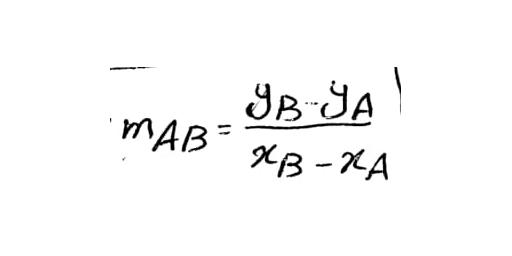 m_{AB} = \frac{y_B - y_A}{x_B - x_A}